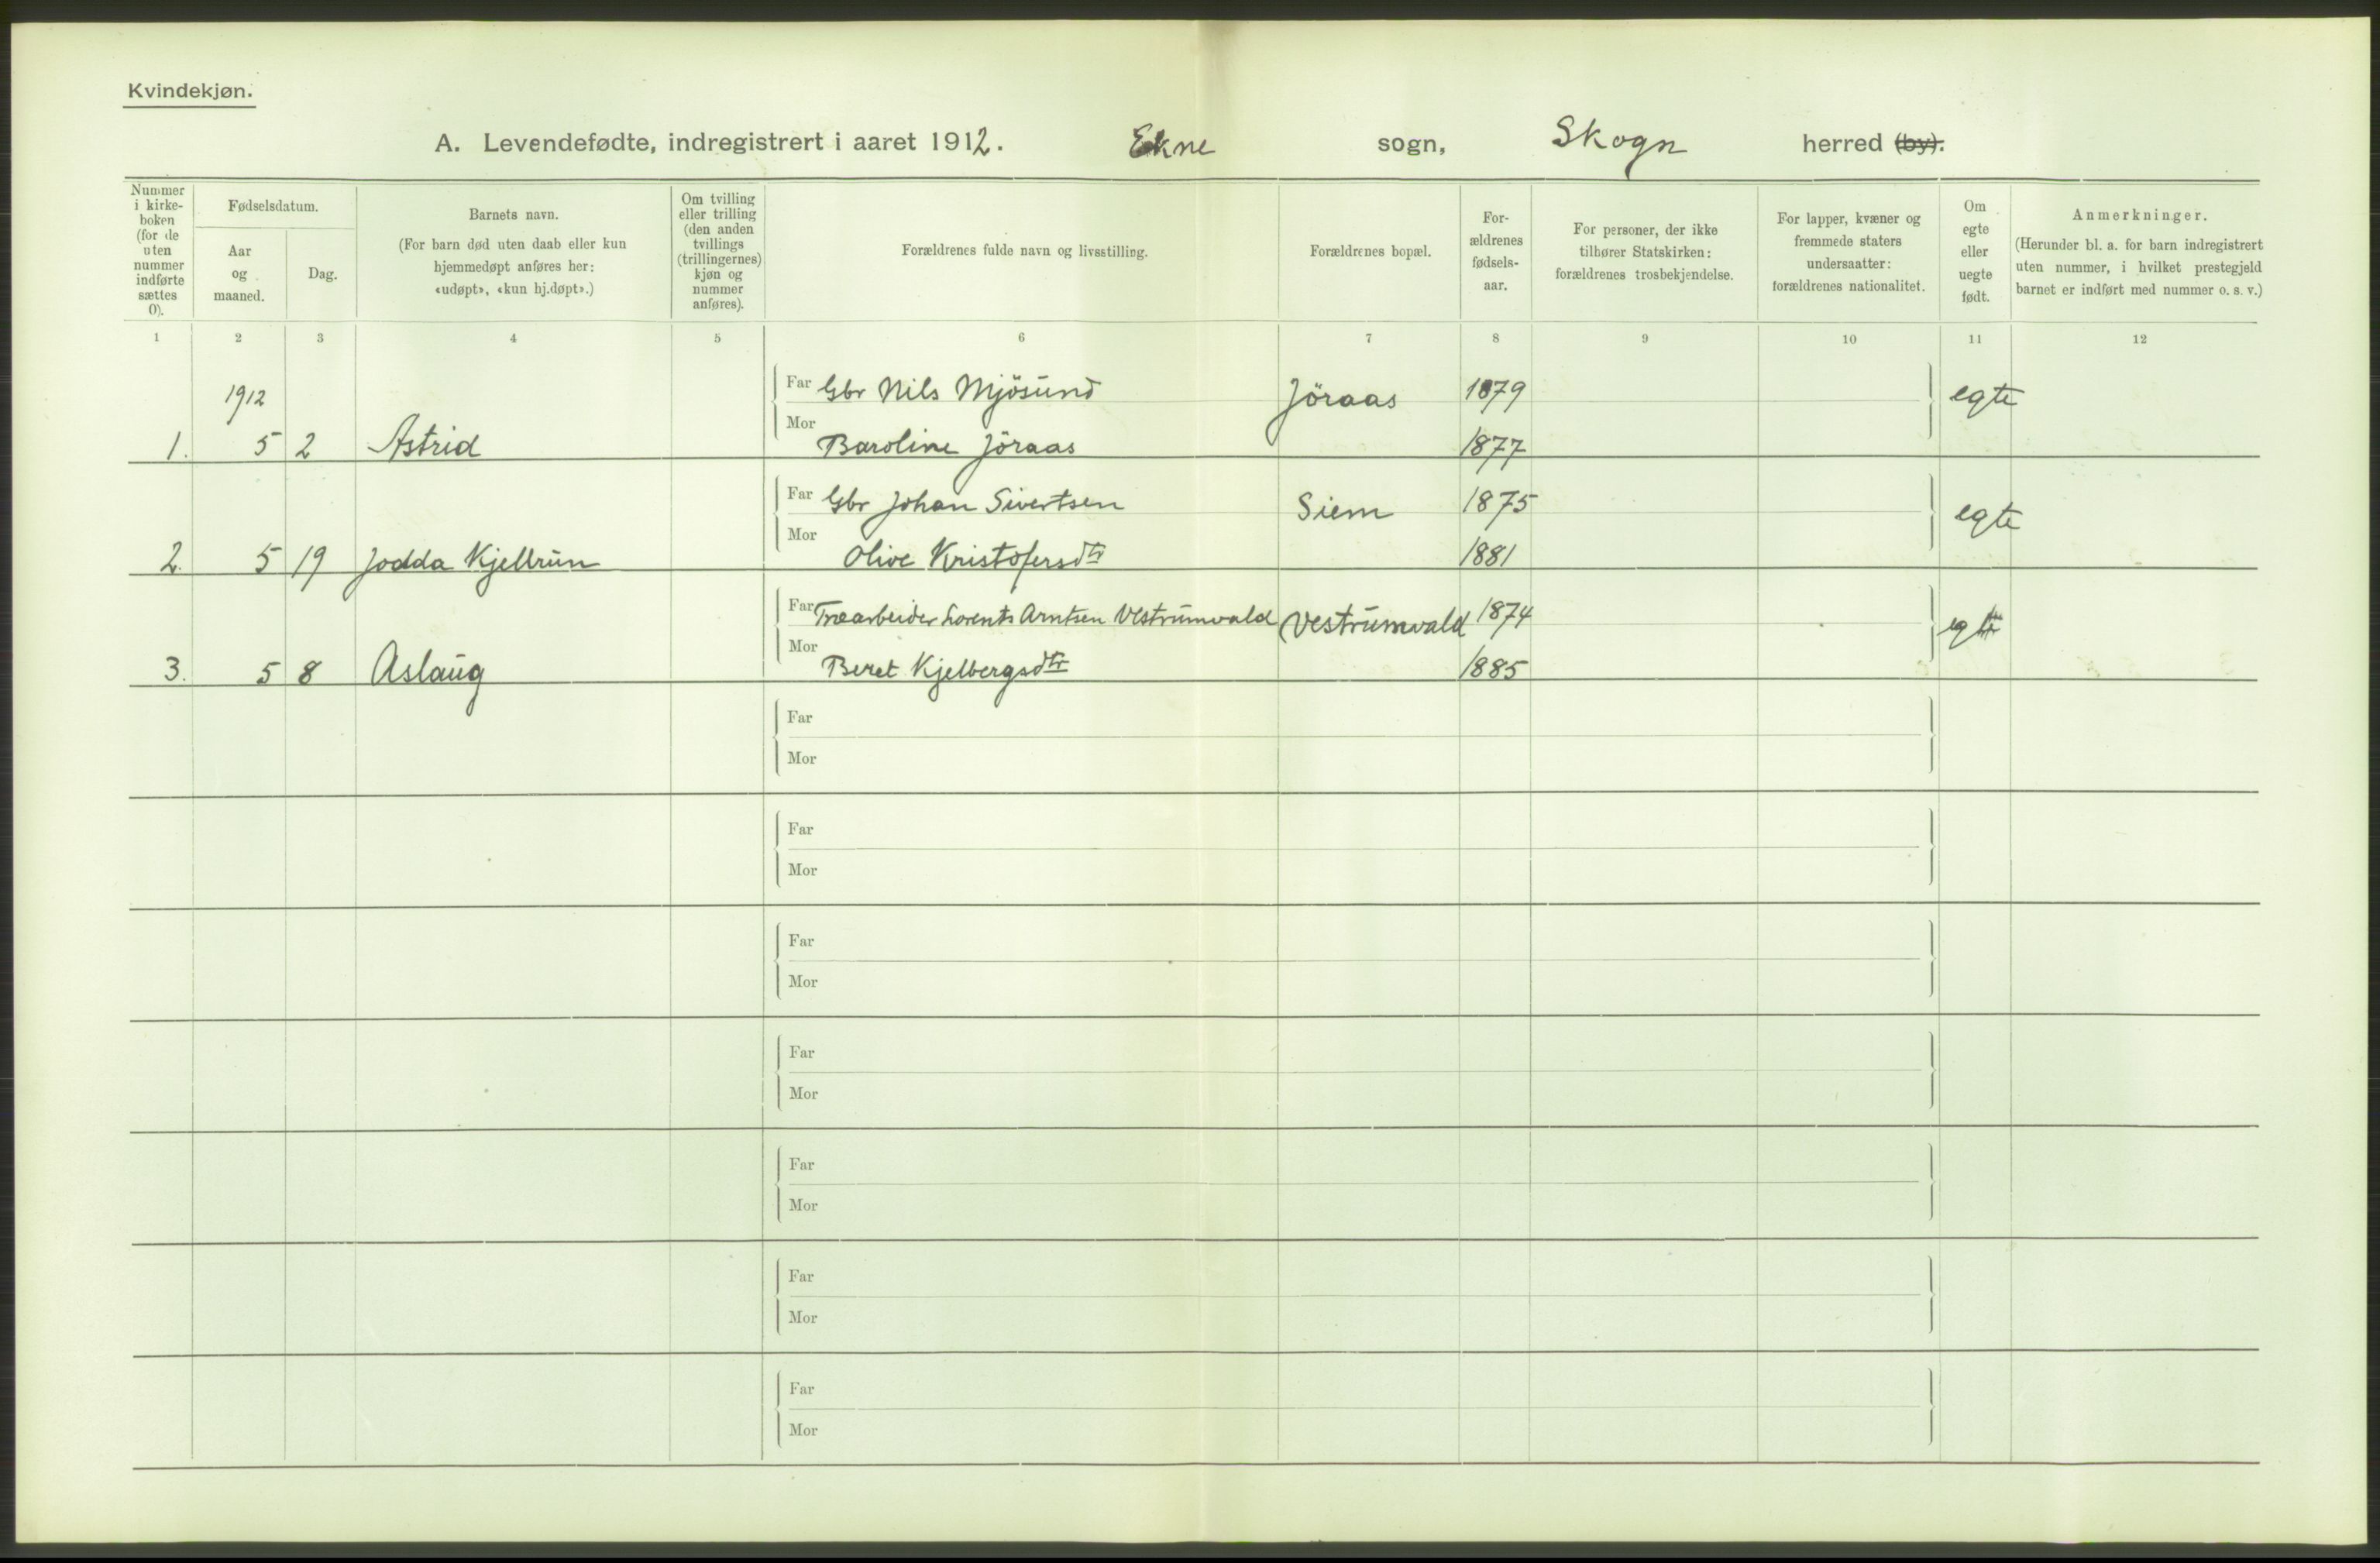 Kvindekjøn.
A. Levendefødte, indregistrert i aaret 1912. Ekne sogn, Skogn herred (by).
Nummer i kirke-boken (for de uten nummer indførte sættes 0).
Fødselsdatum.
Aar og maaned.
Dag.
Barnets navn.
(For barn død uten daab eller kun hjemmedøpt anføres her: «udøpt», «kun hj.døpt».)
Om tvilling eller trilling (den anden tvillings (trillingernes) kjøn og nummer anføres).
Forældrenes fulde navn og livsstilling.
Forældrenes bopæl.
For-ældrenes fødsels-aar.
For personer, der ikke tilhører Statskirken: forældrenes trosbekjendelse.
For lapper, kvæner og fremmede staters undersaatter: forældrenes nationalitet.
Om egte eller uegte født.
Anmerkninger.
(Herunder bl. a. for barn indregistrert uten nummer, i hvilket prestegjeld barnet er indført med nummer o. s. v.)
1 2 3 4 5 6 7 8 9 10 11 12
1912
Far Gbr Nils Mjösund Jöraas 1879 egte
1. 5 2 Astrid Mor Baroline Jöraas 1877
Far Gbr Johan Sivertsen Siem 1875 egte
2. 5 19 Jodda Kjellrun Mor Olive Kristofersdtr 1881
Far Træarbeider Lorents Arntsen Vestrumvald Vestrumvald 1874 egte
3. 5 8 Aslaug Mor Beret Kjelbergsdtr 1885
Far
Mor
Far
Mor
Far
Mor
Far
Mor
Far
Mor
Far
Mor
Far
Mor